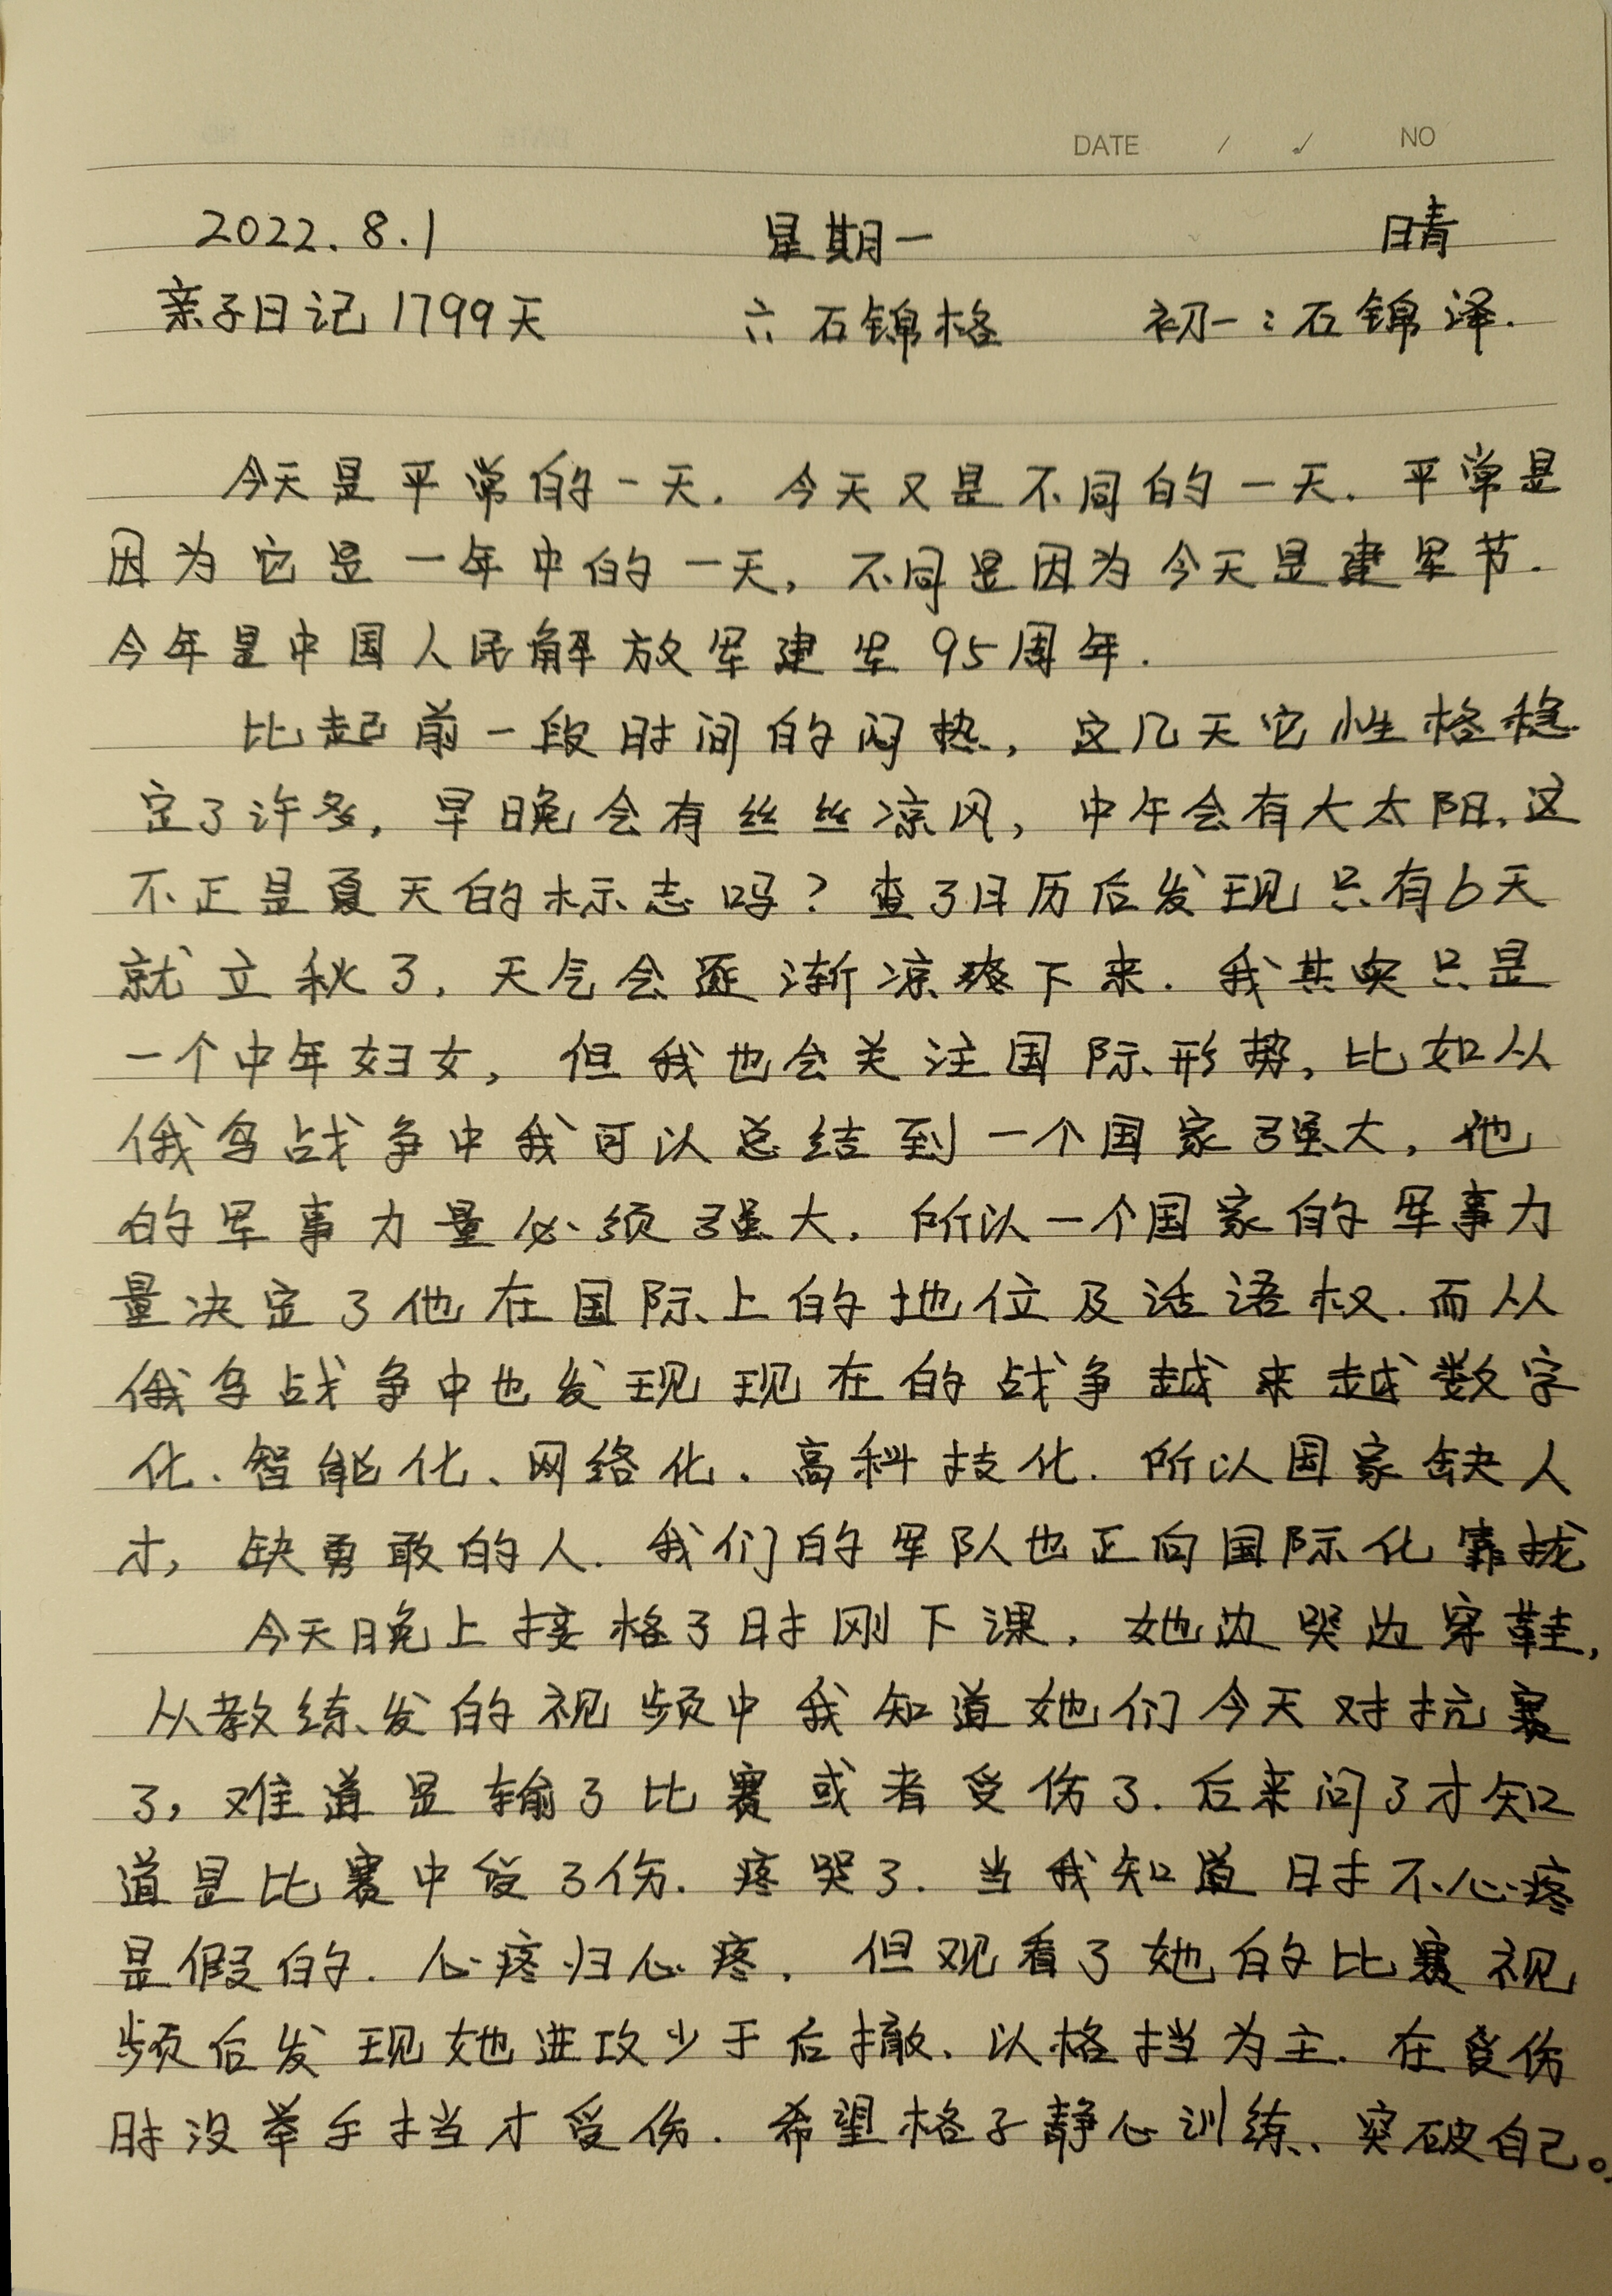 DATE / / NO
2022.8.1 星期一 晴
亲子日记1799天 六 石锦格 初一:石锦泽.
今天是平常的一天.今天又是不同的一天.平常是
因为它是一年中的一天,不同是因为今天是建军节.
今年是中国人民解放军建军95周年.
比起前一段时间的闷热,这几天它性格稳
定了许多,早晚会有丝丝凉风,中午会有大太阳,这
不正是夏天的标志吗?查了日历后发现只有6天
就立秋了,天气会逐渐凉爽下来.我其实只是
一个中年妇女,但我也会关注国际形势,比如从
俄乌战争中我可以总结到一个国家强大,他
的军事力量必须强大.所以一个国家的军事力
量决定了他在国际上的地位及话语权.而从
俄乌战争中也发现现在的战争越来越数字
化、智能化、网络化.高科技化.所以国家缺人
才,缺勇敢的人.我们的军队也正向国际化靠拢
今天晚上接格子时刚下课,她边哭边穿鞋,
从教练发的视频中我知道她们今天对抗赛
了,难道是输了比赛或者受伤了.后来问了才知
道是比赛中受了伤.疼哭了.当我知道时不心疼
是假的.心疼归心疼,但观看了她的比赛视
频后发现她进攻少于后撤、以格挡为主.在受伤
时没举手挡才受伤.希望格子静心训练、突破自己。